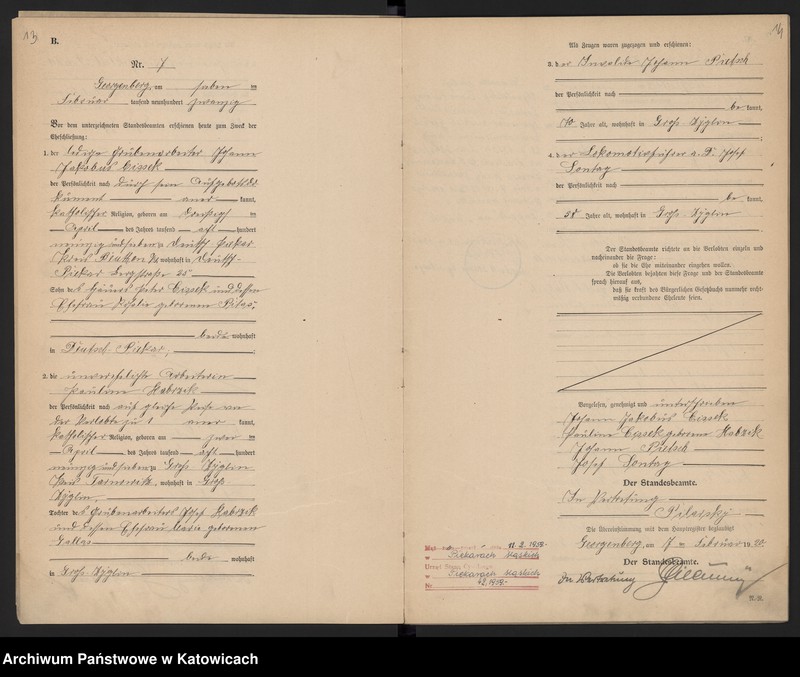 13
B.
Nr. 7
Georgenberg, am sieben ten
Februar tausend neunhundert zwanzig
Vor dem unterzeichneten Standesbeamten erschienen heute zum Zweck der
Eheschließung:
1. der ledige Grubenarbeiter Johann
Jakobus Cissek
der Persönlichkeit nach durch sein Aufgebot
kannt,
katholischer Religion, geboren am
April des Jahres tausend acht hundert
neunzig und sieben zu Deutsch Piekar
Kreis Beuthen wohnhaft in Deutsch-
Piekar Bergstraße 25
Sohn des Häuers Peter Cissek und dessen
Ehefrau geborenen
beide wohnhaft
in Deutsch Piekar,
2. die unverehelichte Arbeiterin
Pauline Habrzik
der Persönlichkeit nach auf gleiche Weise wie
der Verlobte zu 1 kannt,
katholischer Religion, geboren am ten
April des Jahres tausend acht hundert
neunzig und sieben zu Groß Zyglin
Kreis Tarnowitz, wohnhaft in Groß
Zyglin,
Tochter des Grubenarbeiters Josef Habrzik
und dessen Ehefrau Maria geborenen
Gallas
beide wohnhaft
in Groß Zyglin
14
Als Zeugen waren zugezogen und erschienen:
3. der Invalide Johann Pietsch
der Persönlichkeit nach
be kannt,
70 Jahre alt, wohnhaft in Groß Zyglin
4. der Lokomotivführer a. D. Josef
Sontag
der Persönlichkeit nach
be kannt,
58 Jahre alt, wohnhaft in Groß Zyglin
Der Standesbeamte richtete an die Verlobten einzeln und
nacheinander die Frage:
ob sie die Ehe miteinander eingehen wollen.
Die Verlobten bejahten diese Frage und der Standesbeamte
sprach hierauf aus,
daß sie kraft des Bürgerlichen Gesetzbuchs nunmehr recht-
mäßig verbundene Eheleute seien.
Vorgelesen, genehmigt und unterschrieben
Johann Jakobus Cissek
Pauline Cissek geborene Habrzik
Johann Pietsch
Josef Sontag
Der Standesbeamte.
In Vertretung
Pilawsky
Die Übereinstimmung mit dem Hauptregister beglaubigt
Georgenberg, am 7 ten Februar 1920.
Der Standesbeamte.
In Vertretung
Piekarach Śląskich
Piekarach Śląskich
Archiwum Państwowe w Katowicach